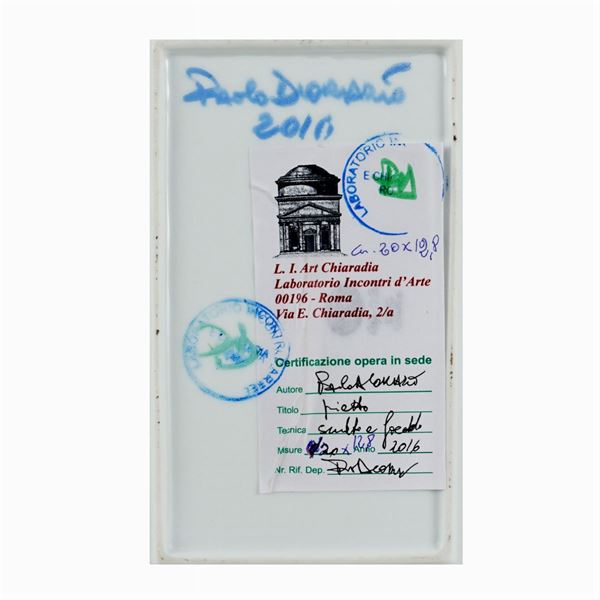 Paolo Dorazio
2016
LABORATORIO IN
E CHI
RO
cm. 20 x 12,8
L. I. Art Chiaradia
Laboratorio Incontri d'Arte
00196 - Roma
Via E. Chiaradia, 2/a
LABORATORIO INCONTRI
Certificazione opera in sede
Autore
Titolo
Tecnica smalto e
Msure 20 x 12,8 Anno 2016
Nr. Rif. Dep.